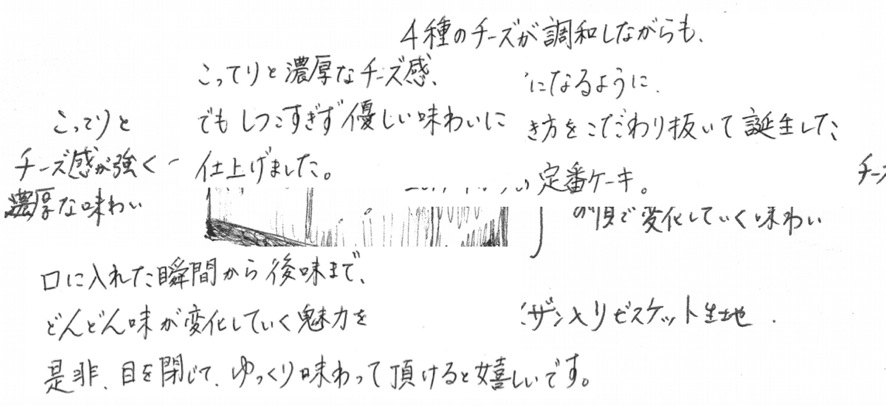 4種のチーズが調和しながらも、
こってりと濃厚なチーズ感、
でもしつこすぎず優しい味わいに
仕上げました。
になるように
き方をこだわり抜いて誕生した
い定番ケーキ。
こってりと
チーズ感が強く
濃厚な味わい
チーズ
の順で変化していく味わい
口に入れた瞬間から後味まで、
どんどん味が変化していく魅力を
是非、目を閉じて、ゆっくり味わって頂けると嬉しいです。
ザン入りビスケット生地